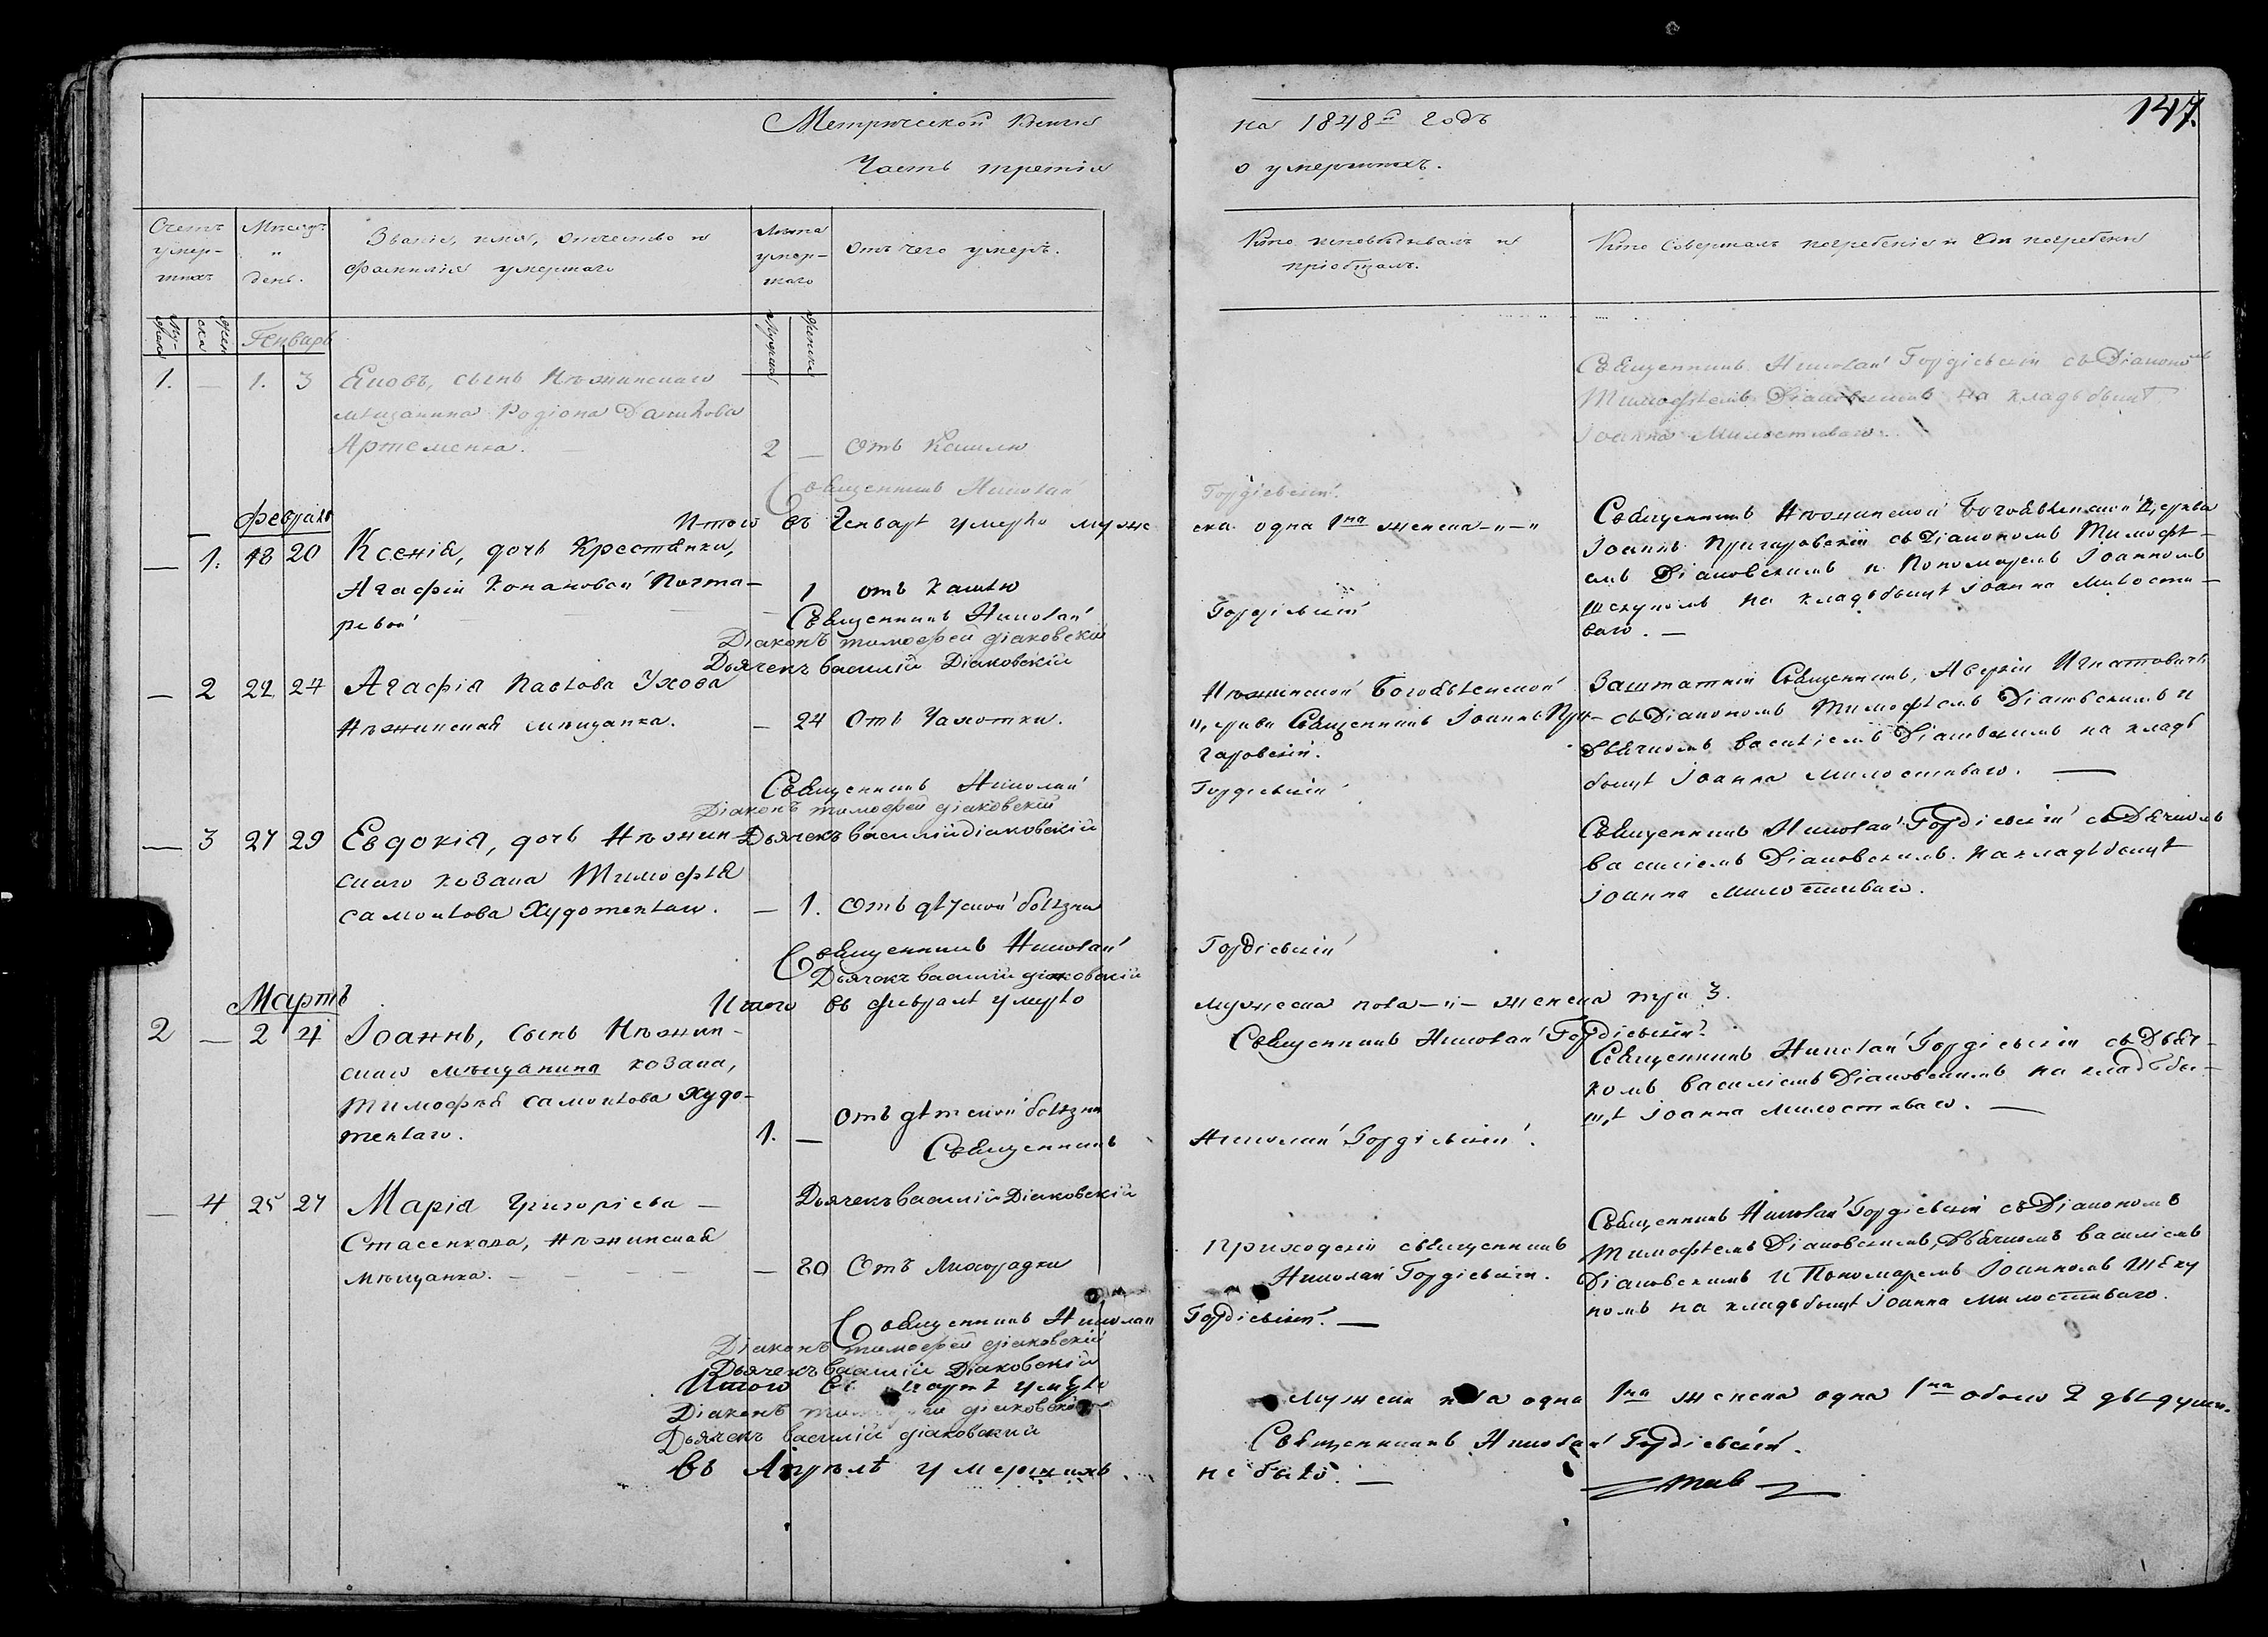 147.
Метрической книги на 1848й годъ
Часть третія о умершихъ.
Счетъ умер-
шихъ
Мѣсяцъ
и
день.
Званіе, имя, отчество и
фамилія умершаго
Лѣта
умер-
шаго
Отъ чего умеръ.
Кто исповѣдывалъ и
пріобщалъ.
Кто совершалъ погребеніе и гдѣ погребены
Му-
жеска
жен
ска
Генварь
Мужеска
Женска
1. — 1. 3 Яковъ, сынъ Нѣжинскаго
мѣщанина Родіона Данилова
Артеменка. — 2 — Отъ Кашлю
Священникъ Николай Гордіевскій съ Діакономъ
Тимофѣемъ Діаковскимъ на кладбыщѣ
Іоанна Милостиваго.
Священникъ Николай Гордіевскій.
Итого въ Генварѣ умерло муже
ска одна 1на женска —"—"
Февраль
— 1. 18 20 Ксенія, дочь Крестянки,
Агафіи Конановой Почта-
ревой 1 отъ кашлю
Священникъ Николай Гордіевскій
Діаконъ тимофей діаковскій
Дьячекъ василій Діаковскій
Священникъ Нѣжинской Богоявленской Церкви
Іоаннъ Пригаровскій съ Діакономъ Тимофѣ-
емъ Діаковскимъ и Пономаремъ Іоанномъ
на кладъбыщѣ Іоанна Милости-
ваго. —
— 2 22 24 Агафія Павлова Ухова
Нѣжинская мѣщанка. — 24 Отъ Чахотки.
Нѣжинской Богоявленской
Церкви Священникъ Іоаннъ При-
гаровскій.
Заштатній Священникъ, Аверкій Игнатовичь
съ Діакономъ Тимофѣемъ Діаковскимъ и
Дьячкомъ василіемъ Діаковскимъ на кладъ
быщѣ Іоанна Милостиваго. —
Священникъ Николай Гордіевскій
Діаконъ тимофей діаковскій
Дьячекъ василій діаковскій
— 3 27 29 Евдокія, дочь Нѣжин-
скаго козака Тимофѣя
Самойлова Худотеплаго. — 1. Отъ дѣтской болѣзни
Священникъ Николай Гордіевскій съ Дячкомъ
василіемъ Діаковскимъ на кладъбыщѣ
Іоанна Милостиваго.
Священникъ Николай Гордіевскій
Дьячекъ василій діаковскій
Итого въ февралѣ умерло мужеска пола —"— женска три 3.
Священникъ Николай Гордіевскій.
Мартъ
2 — 2 4 Іоаннъ, сынъ Нѣжин-
скаго мѣщанина козака,
Тимофѣя Самойлова Худо-
теплаго. 1. — Отъ дѣтской болѣзни
Священникъ Николай Гордіевскій съ Дьяч-
комъ василіемъ Діаковскимъ на кладъбы-
щѣ Іоанна Милостиваго. —
Священникъ Николай Гордіевскій.
Дьячекъ василій Діаковскій
— 4 25 27 Марія Григоріева —
Стасенкова, Нѣжинская
мѣщанка. — — — — 80 Отъ Лихорадки
Приходскій священникъ
Николай Гордіевскій.
Священникъ Николай Гордіевскій съ Діакономъ
Тимофѣемъ Діаковскимъ, Дьячкомъ василіемъ
Діаковскимъ и Пономаремъ Іоанномъ
на кладъбыщѣ Іоанна Милостиваго.
Священникъ Николай Гордіевскій. —
Діаконъ тимофей діаковскій
Дьячекъ василій Діаковскій
Итого въ мартѣ умерло мужеска пола одна 1на женска одна 1на обоего 2 двѣ души.
Діаконъ тимофей діаковскій
Дьячекъ василій діаковский
Священникъ Николай Гордіевскій.
Въ Апрѣлѣ умершихъ не было. —